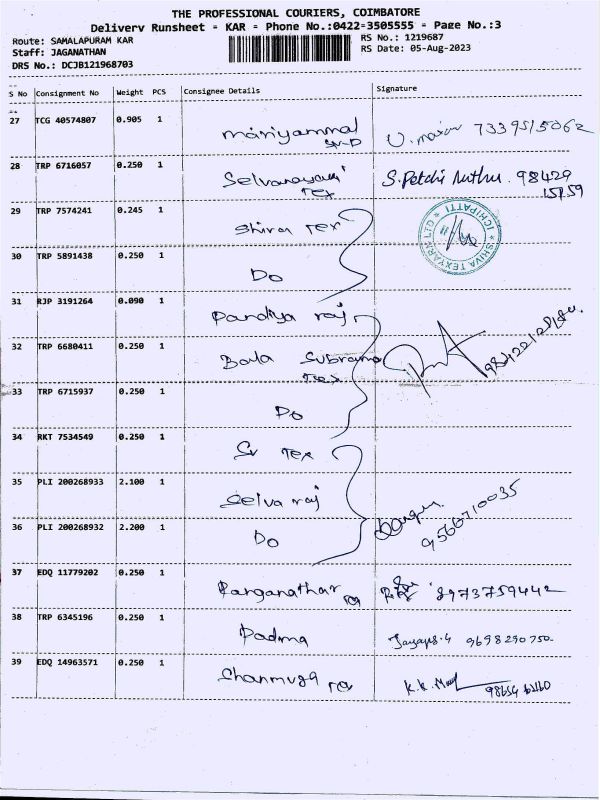 THE PROFESSIONAL COURIERS, COIMBATORE
Delivery Runsheet = KAR = Phone No.:0422-3505555 = Page No.:3
Route: SAMALAPURAM KAR
Staff: JAGANATHAN
DRS No.: DCJB121968703
RS No.: 1219687
RS Date: 05-Aug-2023
S No Consignment No Weight PCS Consignee Details Signature
27 TCG 40574807 0.905 1 mariyammal 7339515062
28 TRP 6716057 0.250 1 Selvanayaki Tex S. Petchi Muthu. 98429
15159
29 TRP 7574241 0.245 1 Shiva Tex
SHIVA TEXYARN LTD ICHIPATTI
30 TRP 5891438 0.250 1 Do
31 RJP 3191264 0.090 1 Pandiya raj
32 TRP 6680411 0.250 1 Bala Subrama Tex
33 TRP 6715937 0.250 1 Do
34 RKT 7534549 0.250 1 Sv Tex
35 PLI 200268933 2.100 1 Selva raj
9566710035
36 PLI 200268932 2.200 1 Do
37 EDQ 11779202 0.250 1 Ranganathar 8973759442
38 TRP 6345196 0.250 1 Padma 9698290750
39 EDQ 14963571 0.250 1 Shanmuga K.K.